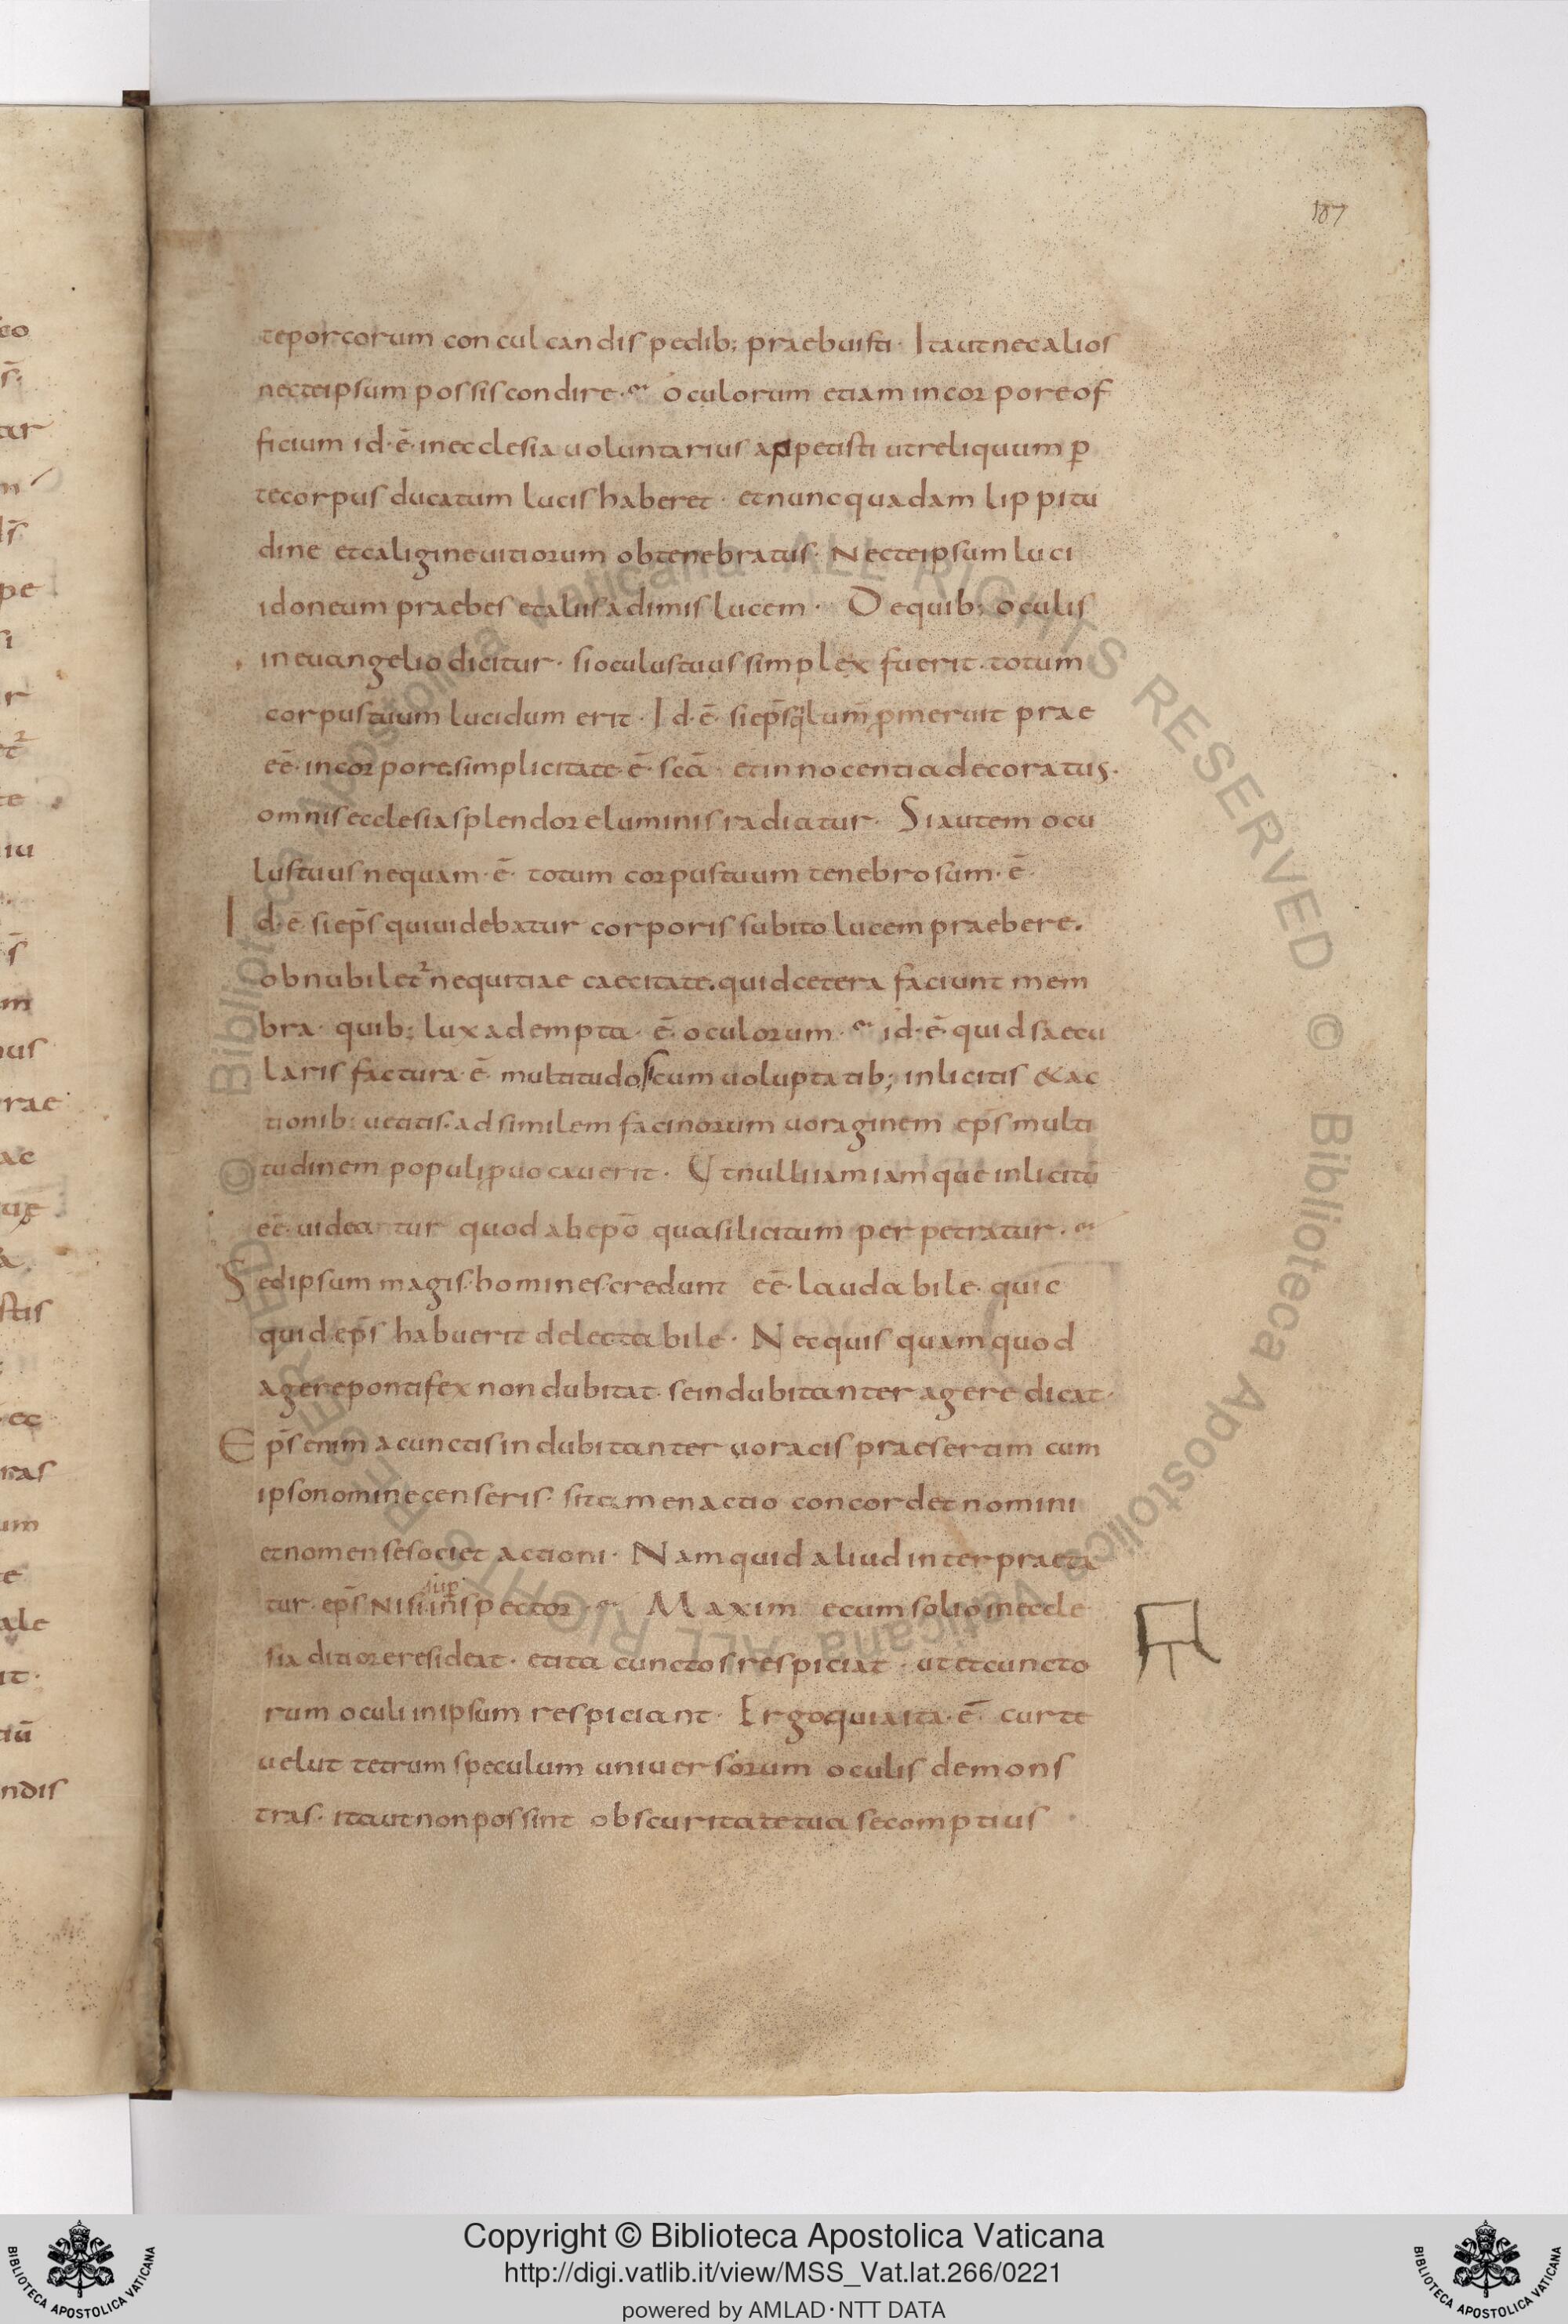 107
teporcorum conculcandis pedib; praebuisti· Itautnecalios
necteipsum possiscondire· oculorum etiam incorporeof
ficium id·ē·inecclesia uoluntarius appetisti utreliquum p̄
tecorpus ducatum lucishaberet· etnuncquadam lippitu
dine etcaligineuitiorum obtenebratus· Necteipsum luci
idoneum praebes etaliisadimislucem· Dequib; oculis
ineuangeliodicitur· sioculustuussimplex fuerit·totum
corpustuum lucidum erit· Id·ē· siep̄s lum meruit prae
eē·incorpore·simplicitate·ē·scā· etinnocentiadecoratus·
omnisecclesiasplendoreluminisradiatur· Siautem ocu
lustuusnequam·ē· totum corpustuum tenebrosum·ē·
Id·ē·siep̄s quiuidebatur corporissubitolucempraebere·
obnubilet̄nequitiae caecitate·quidcetera faciunt mem
bra· quib; luxadempta·ē·oculorum· id·ē·quidsaecu
laris factura·ē· multitudo cumuoluptatib; inlicitis &ac
tionib; uetitis·adsimilem facinorum uoraginem ep̄smulti
tudinem populiꝓuocauerit· Utnulliiamiamqueinlicitū
eē·uideatur quodabep̄o quasilicitum perpetratur·
Sedipsum magis·hominescredunt eē·laudabile·quic
quidep̄s habuerit delectabile· Necquis quamquod
agerepontifexnondubitat·seindubitanteragere dicat·
Ep̄senim acunctisindubitanter uoracis praesertim cum
ipsonominecenseris· sittamenactio concordetnomini
etnomensesociet actioni· Namquidaliudinterpraeta
tur·ep̄s Nisi sup inspector· Maxim ecumsolioineccle
sia ditioreresideat· etita cunctosrespiciat· utetcuncto
rum oculiinipsum respiciant· Ergoquiaita·ē· curte
uelut tetrum speculum uniuersorum oculis demons
tras· itautnonpossint obscuritatetuasecomptius
© Biblioteca Apostolica Vaticana ALL RIGHTS RESERVED
© Biblioteca Apostolica Vaticana ALL RIGHTS RESERVED
Copyright © Biblioteca Apostolica Vaticana
http://digi.vatlib.it/view/MSS_Vat.lat.266/0221
powered by AMLAD·NTT DATA
BIBLIOTECA APOSTOLICA VATICANA
BIBLIOTECA APOSTOLICA VATICANA